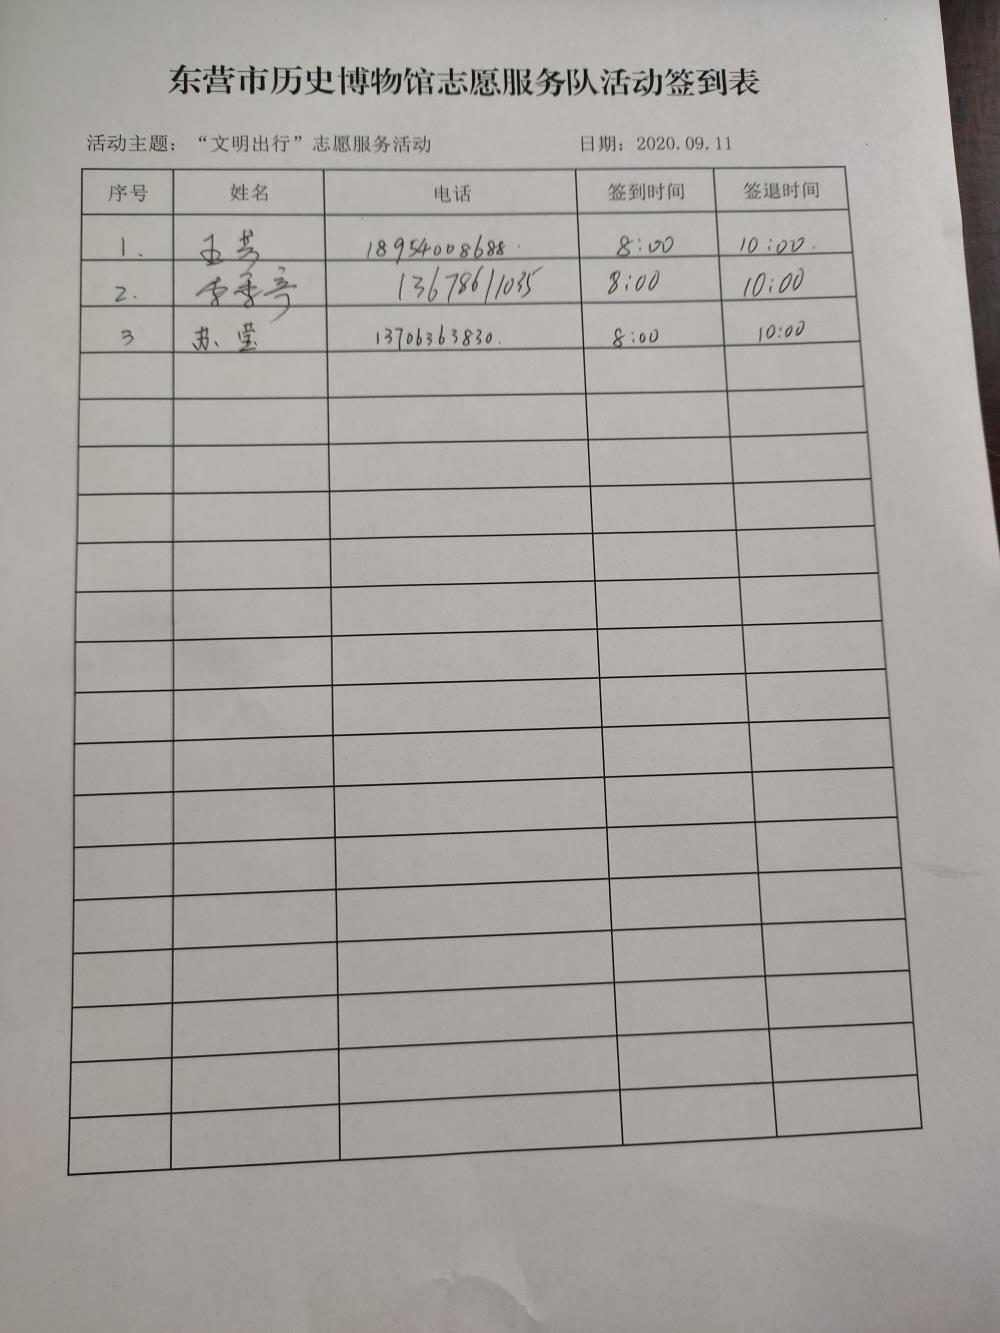 东营市历史博物馆志愿服务队活动签到表
活动主题：“文明出行”志愿服务活动 日期：2020.09.11
序号 姓名 电话 签到时间 签退时间
1. 王芳 18954008688. 8:00 10:00.
2. 李季 13678611035 8:00 10:00
3 苏莹 13706363830. 8:00 10:00